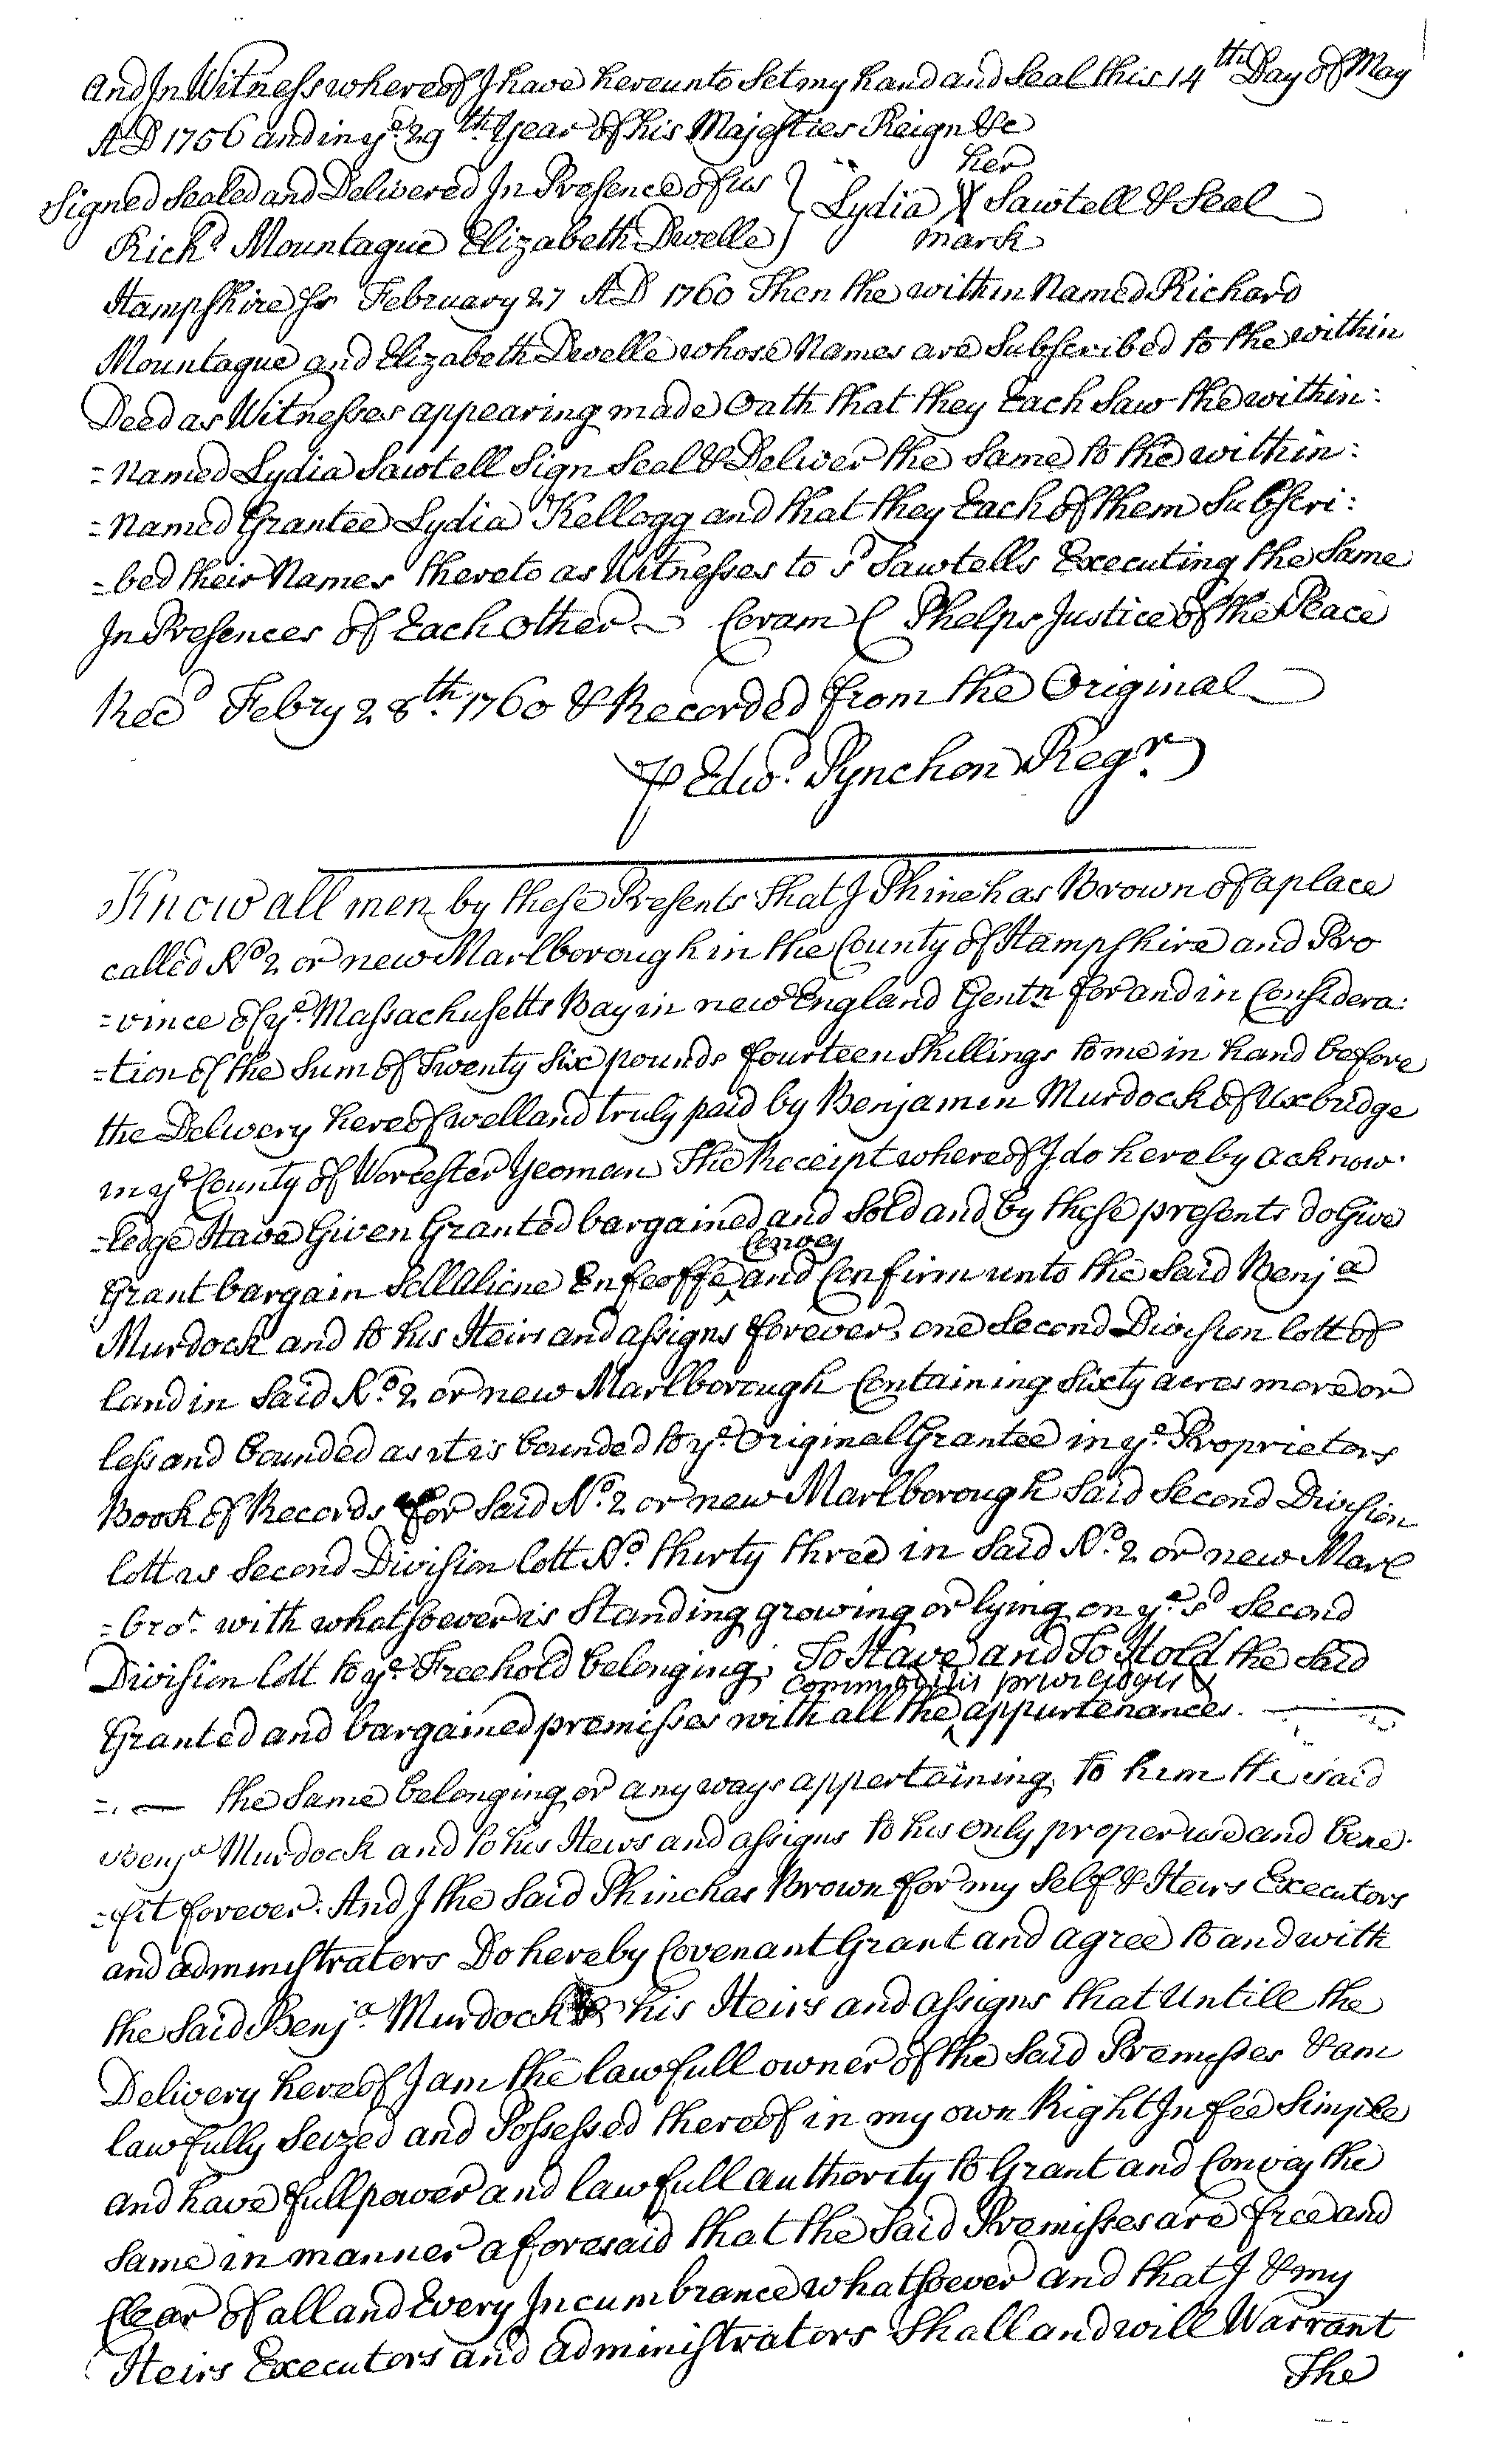 And In Witness whereof I have hereunto Set my hand and Seal this 14th Day of May
AD 1756 and in ye. 29th. Year of his Majesties Reign &c
her
Signed Sealed and Delivered In Presence of us } Lydia X Sawtell & Seal
Richd Mountague Elizabeth Dwelle } mark
Hampshire Ss February 27 AD 1760 Then the within Named Richard
Mountague and Elizabeth Dwelle whose Names are Subscribed to the within
Deed as Witnesses appearing made Oath that they Each Saw the within:
=Named Lydia Sawtell Sign Seal & Deliver the Same to the within:
=Named Grantee Lydia Kellogg and that they Each of them Subscri:
=bed their Names thereto as Witnesses to sd Sawtells Executing the Same
In Presences of Each Other Coram C Phelps Justice of the Peace
Recd Febry 28th. 1760 & Recorded from the Original
P Edwd. Pynchon Regr.
Know all men by these Presents that I Phinehas Brown of a place
called No. 2 or new Marlborough in the County of Hampshire and Pro
=vince of ye. Massachusetts Bay in new England Gentn for and in Considera:
=tion of the Sum of Twenty Six pounds fourteen Shillings to me in hand before
the Delivery hereof well and truly paid by Benjamin Murdock of Uxbridge
in ye County of Worcester Yeoman The Receipt whereof I do hereby acknow-
=ledge Have Given Granted bargained and Sold and by these presents do Give
Convey
Grant bargain Sell Aliene Enfeoffe ^ and Confirm unto the Said Benja
Murdock and to his Heirs and assigns forever, one Second Division lott of
land in Said No. 2 or new Marlborough Containing Sixty acres more or
less and bounded as it is bounded to ye. Original Grantee in ye. Proprietors
Book of Records for Said No. 2 or new Marlborough Said Second Division
lott is Second Division lott No. thirty three in Said No. 2 or new Marl
=bro'. with whatsoever is Standing growing or lying on ye. sd Second
Division lott to ye. Freehold belonging; To Have and To Hold the Said
Commodities priviledges &
Granted and bargained premisses with all the ^ appurtenances.
the Same belonging or any ways appertaining, to him the said
Benja Murdock and to his Heirs and assigns to his only proper use and bene-
=fit forever. And I the Said Phinehas Brown for my Self & Heirs Executors
and administrators Do hereby Covenant Grant and agree to and with
the Said Benja. Murdock & his Heirs and assigns that Untill the
Delivery hereof I am the lawfull owner of the Said Premisses & am
lawfully Seized and Possessed thereof in my own Right In fee Simple
and have full power and lawfull authority to Grant and Convey the
Same in manner aforesaid that the Said Premisses are free and
Clear of all and Every Incumbrance whatsoever and that I & my
Heirs Executors and administrators Shall and will Warrant
The